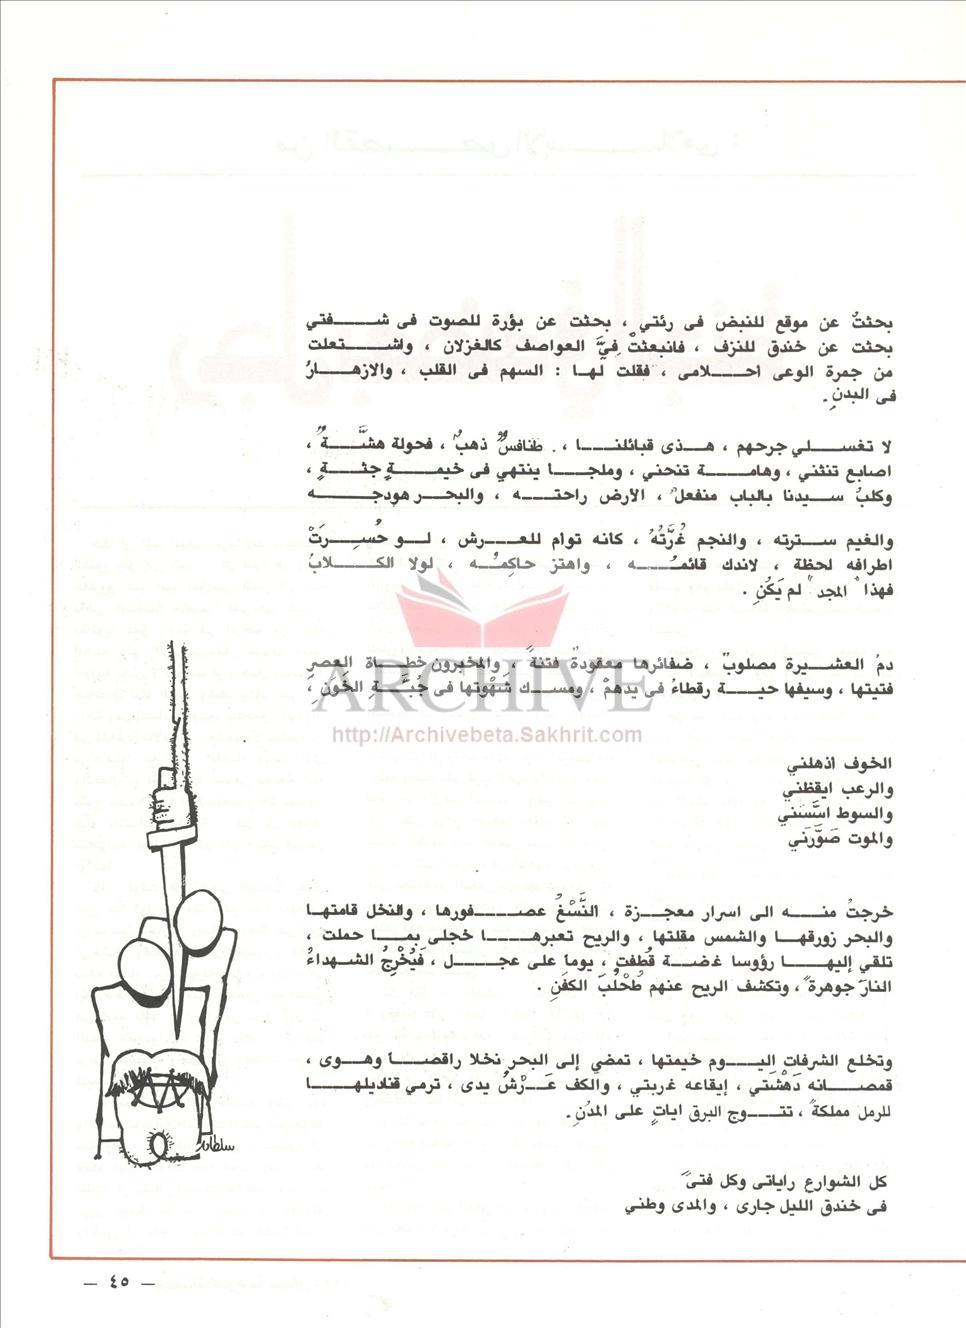 بحثتُ عن موقع للنبض فى رئتي ، بحثت عن بؤرة للصوت فى شفتي
بحثت عن خندق للنزف ، فانبعثتْ فِيَّ العواصف كالغزلان ، واشتعلت
من جمرة الوعى أحلامى ، فقلت لها : السهم فى القلب ، والازهارُ
فى البدنِ .
لا تغسلي جرحهم ، هذى قبائلنا ، . طنافسٌ ذهبٌ ، فحولة هشَّةٌ ،
اصابع تنثني ، وهامة تنحني ، وملجا ينتهي فى خيمةٍ جثةٍ ،
وكلبُ سيدنا بالباب منفعلٌ ، الأرض راحته ، والبحر هودجه
والغيم سترته ، والنجم غُرَّتُهُ ، كانه توام للعرش ، لو حُسِرَتْ
اطرافه لحظة ، لاندك قائمُه ، واهتز حاكِمُه ، لولا الكلابُ
فهذا " المجد " لم يَكُنِ .
دمُ العشيرة مصلوبٌ ، ضفائرها معقودةٌ فتنةً والمخبرون خطاة العصرِ
فتيتها ، وسيفها حية رقطاءُ فى يدهمْ ، ومسك شهْوتها فى جُبَّةِ الخَوَنِ ،
الخوف اذهلني
والرعب ايقظني
والسوط اسَّسَني
والموت صَوَّرَني
خرجتُ منه الى اسرار معجزة ، النَّسْغُ عصفورها ، والنخل قامتها
والبحر زورقها والشمس مقلتها ، والريح تعبرها خجلى بما حملت ،
تلقي إليها رؤوسا غضة قُطفتْ ، يوما على عجل ، فَيُخْرِجُ الشهداءُ
النارَ جوهرةً ، وتكشف الريح عنهم طُحْلُبَ الكفَنِ .
وتخلع الشرفات اليوم خيمتها ، تمضي إلى البحر نخلا راقصا وهوى ،
قمصانه دَهْشَتي ، إيقاعه غربتي ، والكف عَرْشُ يدى ، ترمي قناديلها
للرمل مملكةً ، تتوج البرق اياتٍ على المدُنِ .
كل الشوارع راياتى وكل فتىً
فى خندق الليل جارى ، والمدى وطني
سلطان
ARCHIVE
http://Archivebeta.Sakhrit.com
— ٤٥ —